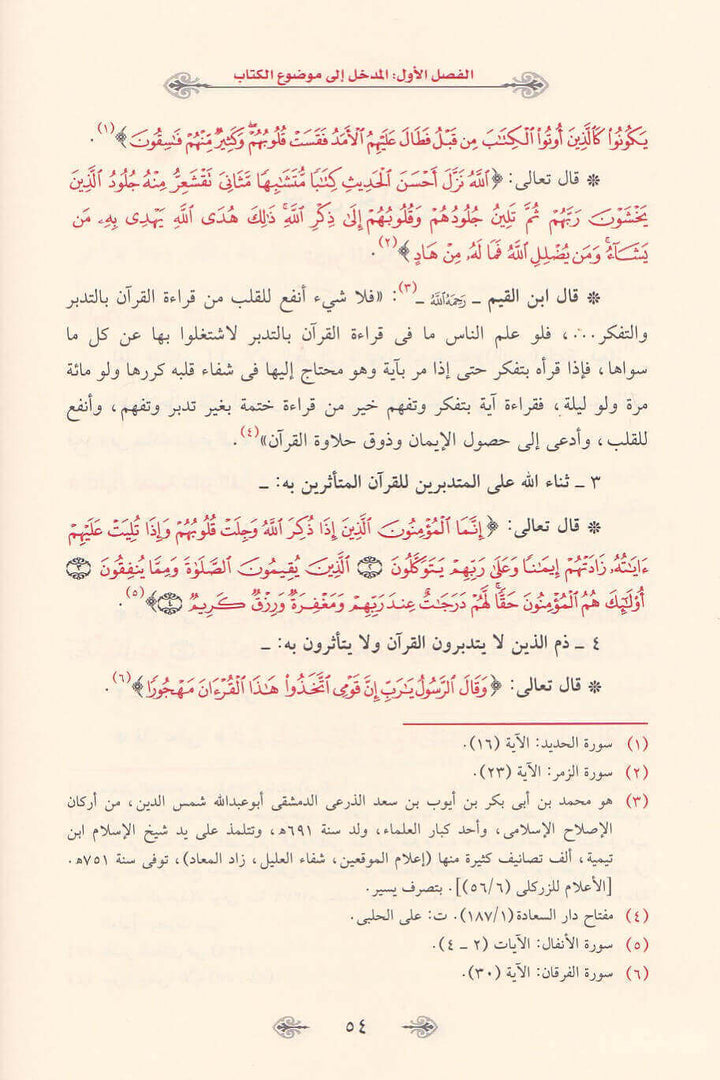 الفصل الأول: المدخل إلى موضوع الكتاب
يَكُونُوا۟ كَٱلَّذِينَ أُوتُوا۟ ٱلْكِتَٰبَ مِن قَبْلُ فَطَالَ عَلَيْهِمُ ٱلْأَمَدُ فَقَسَتْ قُلُوبُهُمْ ۖ وَكَثِيرٌ مِّنْهُمْ فَٰسِقُونَ ﴾(١).
❊ قال تعالى: ﴿ ٱللَّهُ نَزَّلَ أَحْسَنَ ٱلْحَدِيثِ كِتَٰبًا مُّتَشَٰبِهًا مَّثَانِىَ تَقْشَعِرُّ مِنْهُ جُلُودُ ٱلَّذِينَ
يَخْشَوْنَ رَبَّهُمْ ثُمَّ تَلِينُ جُلُودُهُمْ وَقُلُوبُهُمْ إِلَىٰ ذِكْرِ ٱللَّهِ ۚ ذَٰلِكَ هُدَى ٱللَّهِ يَهْدِى بِهِۦ مَن
يَشَآءُ ۚ وَمَن يُضْلِلِ ٱللَّهُ فَمَا لَهُۥ مِنْ هَادٍ ﴾(٢).
❊ قال ابن القيم ـ رَحِمَهُ اللَّهُ ـ(٣): «فلا شيء أنفع للقلب من قراءة القرآن بالتدبر
والتفكر...، فلو علم الناس ما فى قراءة القرآن بالتدبر لاشتغلوا بها عن كل ما
سواها، فإذا قرأه بتفكر حتى إذا مر بآية وهو محتاج إليها فى شفاء قلبه كررها ولو مائة
مرة ولو ليلة، فقراءة آية بتفكر وتفهم خير من قراءة ختمة بغير تدبر وتفهم، وأنفع
للقلب، وأدعى إلى حصول الإيمان وذوق حلاوة القرآن»(٤).
٣ ـ ثناء الله على المتدبرين للقرآن المتأثرين به: ـ
❊ قال تعالى: ﴿ إِنَّمَا ٱلْمُؤْمِنُونَ ٱلَّذِينَ إِذَا ذُكِرَ ٱللَّهُ وَجِلَتْ قُلُوبُهُمْ وَإِذَا تُلِيَتْ عَلَيْهِمْ
ءَايَٰتُهُۥ زَادَتْهُمْ إِيمَٰنًا وَعَلَىٰ رَبِّهِمْ يَتَوَكَّلُونَ ۝٢ ٱلَّذِينَ يُقِيمُونَ ٱلصَّلَوٰةَ وَمِمَّا يُنفِقُونَ ۝٣
أُو۟لَٰٓئِكَ هُمُ ٱلْمُؤْمِنُونَ حَقًّا ۚ لَّهُمْ دَرَجَٰتٌ عِندَ رَبِّهِمْ وَمَغْفِرَةٌ وَرِزْقٌ كَرِيمٌ ۝٤ ﴾(٥).
٤ ـ ذم الذين لا يتدبرون القرآن ولا يتأثرون به: ـ
❊ قال تعالى: ﴿ وَقَالَ ٱلرَّسُولُ يَٰرَبِّ إِنَّ قَوْمِى ٱتَّخَذُوا۟ هَٰذَا ٱلْقُرْءَانَ مَهْجُورًا ﴾(٦).
(١) سورة الحديد: الآية (١٦).
(٢) سورة الزمر: الآية (٢٣).
(٣) هو محمد بن أبى بكر بن أيوب بن سعد الذرعى الدمشقى أبوعبدالله شمس الدين، من أركان
الإصلاح الإسلامى، وأحد كبار العلماء، ولد سنة ٦٩١هـ، وتتلمذ على يد شيخ الإسلام ابن
تيمية، ألف تصانيف كثيرة منها (إعلام الموقعين، شفاء العليل، زاد المعاد)، توفى سنة ٧٥١هـ.
[الأعلام للزركلى (٥٦/٦)]. بتصرف يسير.
(٤) مفتاح دار السعادة (١٨٧/١). ت: على الحلبى.
(٥) سورة الأنفال: الآيات (٢ ـ ٤).
(٦) سورة الفرقان: الآية (٣٠).
٥٤